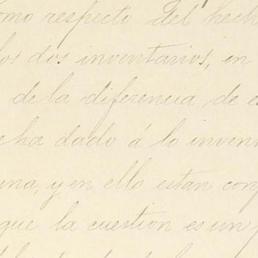 como respecto del hech
los dos inventarios, en
de la diferencia, de e
e ha dado á lo inven
una, y en ello estan con
que la cuestion es un